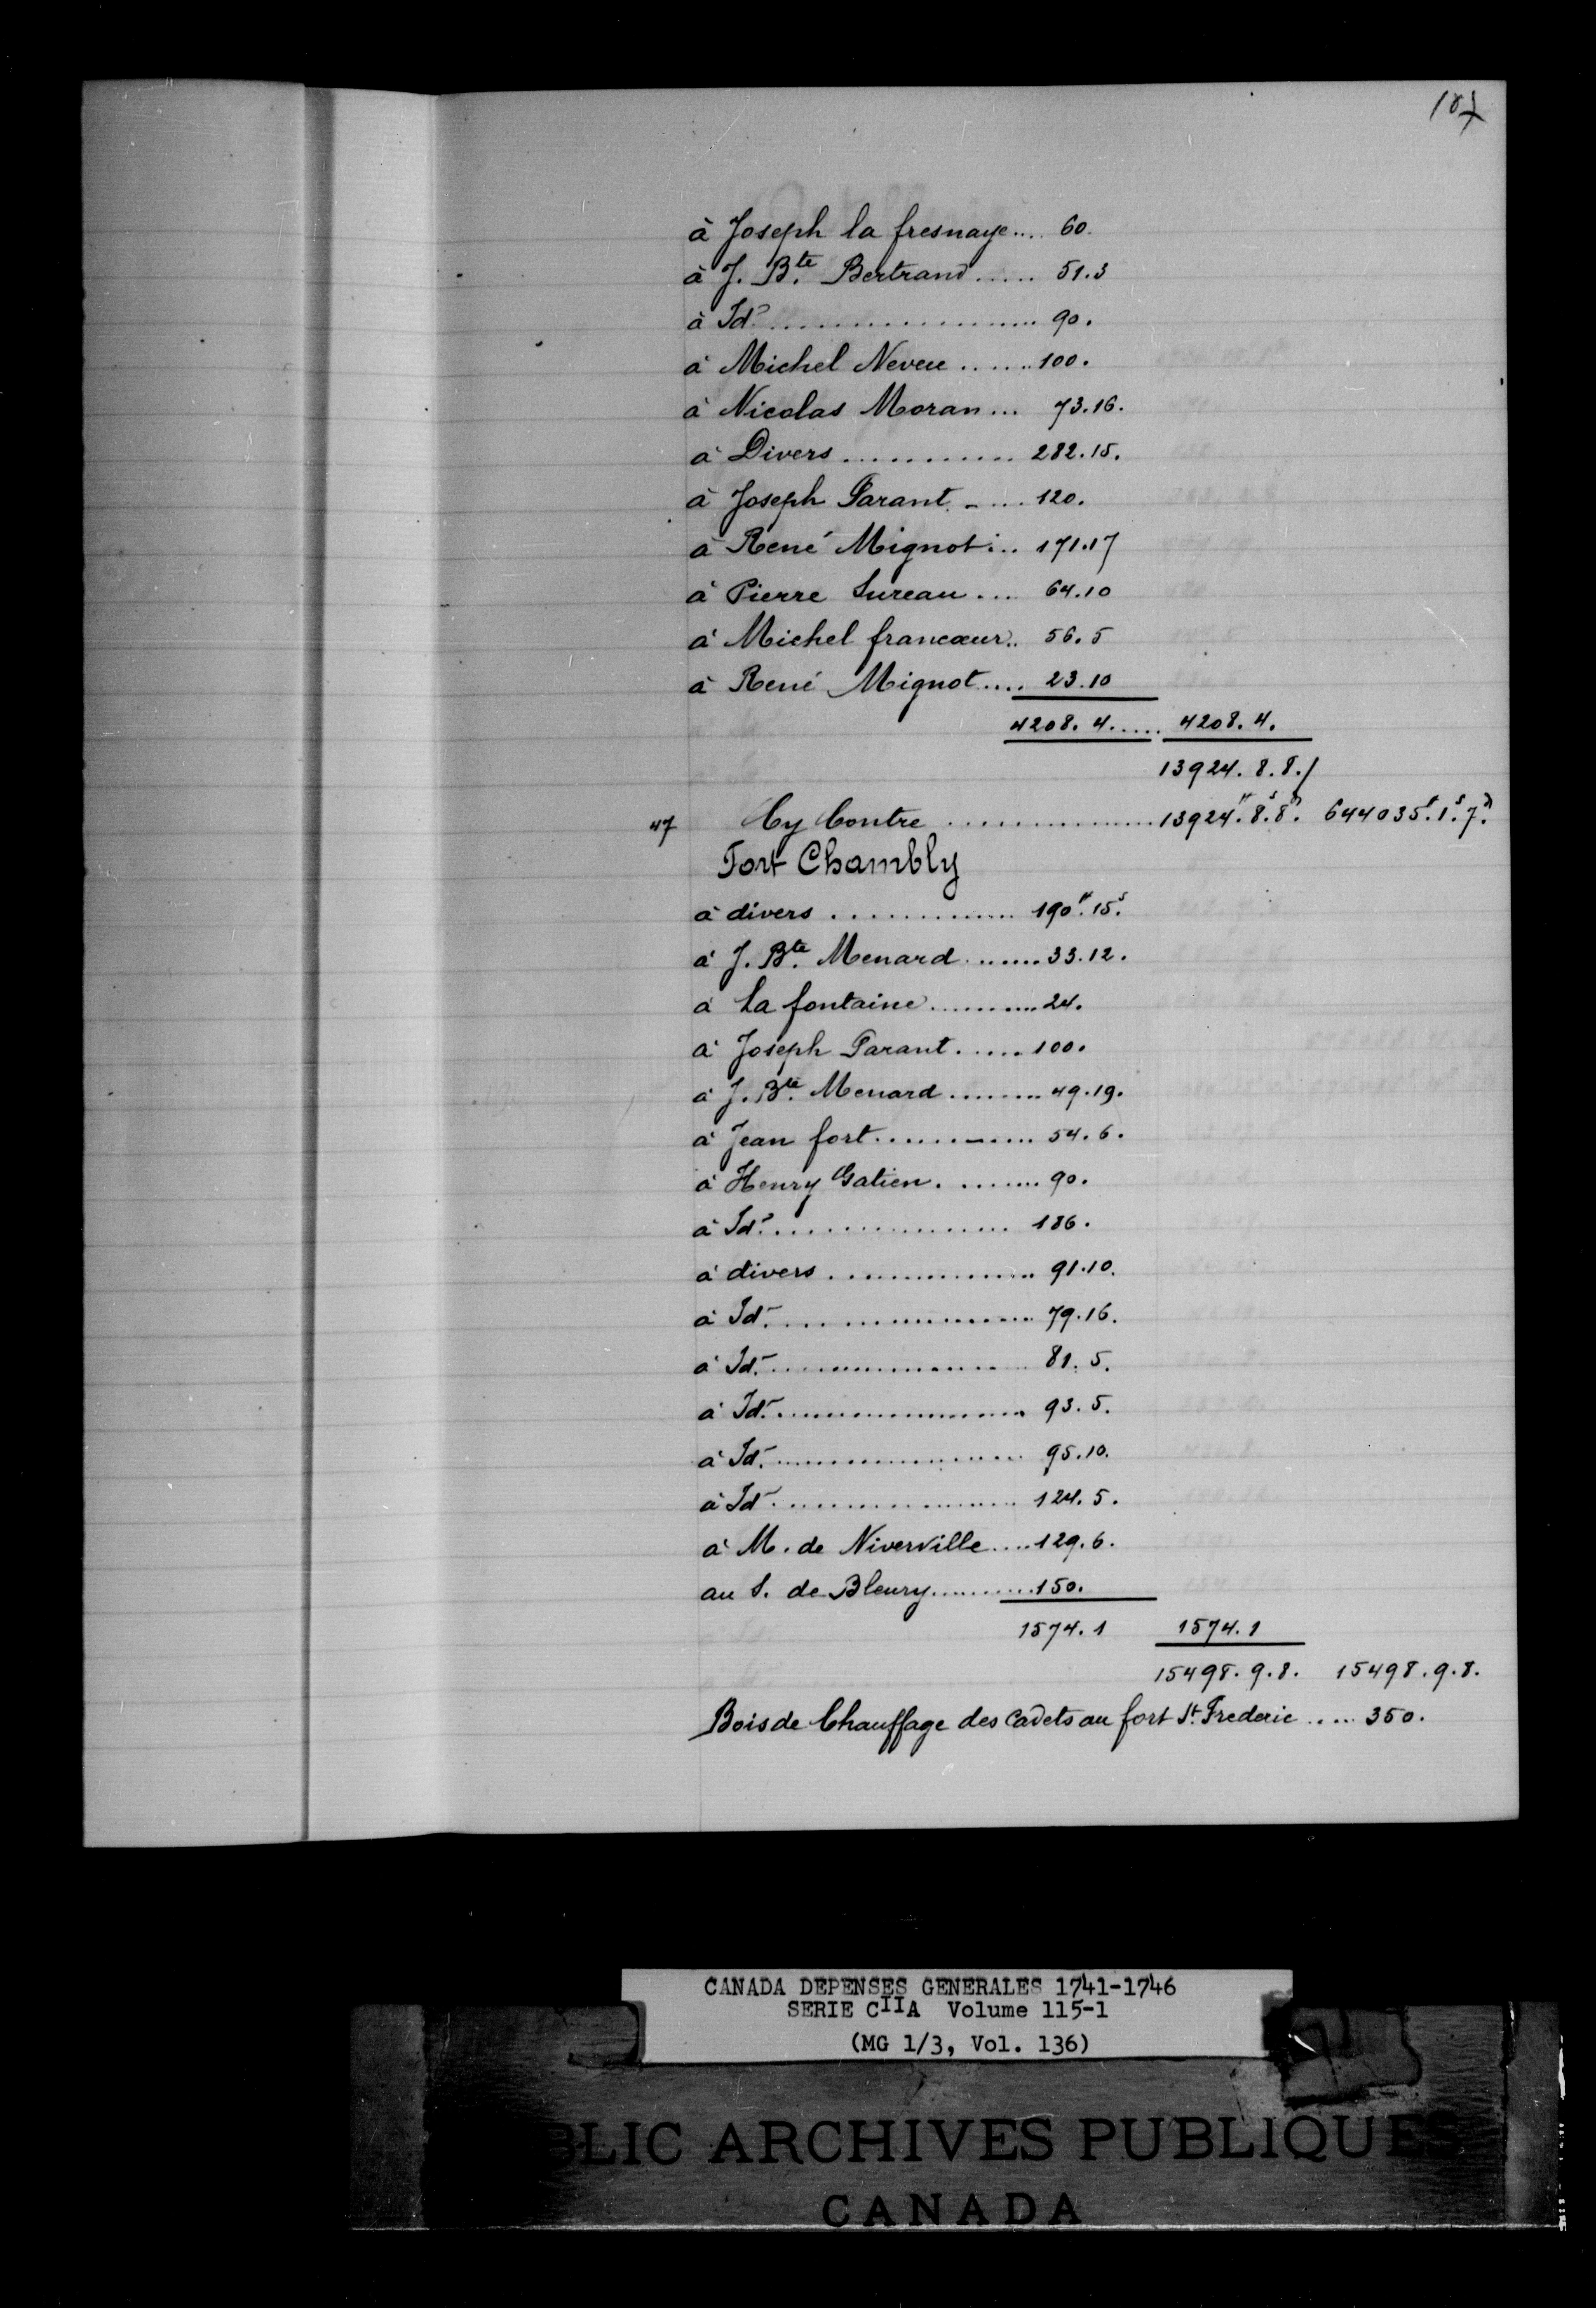 107
à Joseph la fresnaye.... 60.
à J. Bte. Bertrand ..... 51.3
à Ido ..................... 90.
à Michel Neveu ...... 100.
à Nicolas Moran ... 73.16.
à Divers ............ 282.15.
à Joseph Parant. - ... 120.
à René Mignot ... 171.17
à Pierre Sureau ... 64.10
à Michel francœur .. 56.5
à René Mignot .... 23.10
4208. 4. .... 4208. 4.
13924. 8. 8./
47 Cy Contre ................ 13924#. 8s. 8d. 644035#. 1s. 7d.
Fort Chambly
à divers .............. 190#. 15s.
à J. Bte. Menard ....... 33.12.
à La fontaine .......... 24.
à Joseph Parant ...... 100.
à J. Bte. Menard ........ 49.19.
à Jean fort ............ 54. 6.
à Henry Gatien. ........ 90.
à Ido. .................. 186.
à divers ................ 91.10.
à Id. ................... 79.16.
à Id. ................... 81. 5.
à Id. ................... 93. 5.
à Id. ................... 95.10.
à Id. ................... 124. 5.
à M. de Niverville .... 129. 6.
au S. de Bleury .......... 150.
1574. 1 1574. 1
15498. 9. 8. 15498. 9. 8.
Bois de Chauffage des Cadets au fort St. Frederic .... 350.
CANADA DEPENSES GENERALES 1741-1746
SERIE CIIA Volume 115-1
(MG 1/3, Vol. 136)
BLIC ARCHIVES PUBLIQUES
CANADA